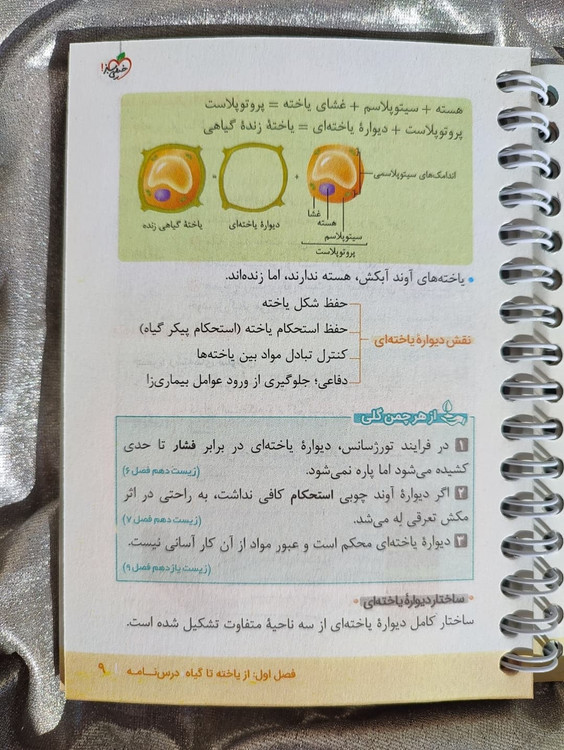 خیلی سبز!
هسته + سیتوپلاسم + غشای یاخته = پروتوپلاست
پروتوپلاست + دیوارهٔ یاخته‌ای = یاختهٔ زندهٔ گیاهی
اندامک‌های سیتوپلاسمی
+
=
غشا
هسته
سیتوپلاسم
پروتوپلاست
دیوارهٔ یاخته‌ای
یاختهٔ گیاهی زنده
• یاخته‌های آوند آبکش، هسته ندارند، اما زنده‌اند.
نقش دیوارهٔ یاخته‌ای
حفظ شکل یاخته
حفظ استحکام یاخته (استحکام پیکر گیاه)
کنترل تبادل مواد بین یاخته‌ها
دفاعی؛ جلوگیری از ورود عوامل بیماری‌زا
از هر چمن گلی
۱ در فرایند تورژسانس، دیوارهٔ یاخته‌ای در برابر فشار تا حدی
کشیده می‌شود اما پاره نمی‌شود. (زیست دهم فصل ۶)
۲ اگر دیوارهٔ آوند چوبی استحکام کافی نداشت، به راحتی در اثر
مکش تعرقی لِه می‌شد. (زیست دهم فصل ۷)
۳ دیوارهٔ یاخته‌ای محکم است و عبور مواد از آن کار آسانی نیست.
(زیست یازدهم فصل ۹)
• ساختار دیوارهٔ یاخته‌ای •
ساختار کامل دیوارهٔ یاخته‌ای از سه ناحیهٔ متفاوت تشکیل شده است.
فصل اول: از یاخته تا گیاه درس‌نـامـه ۹